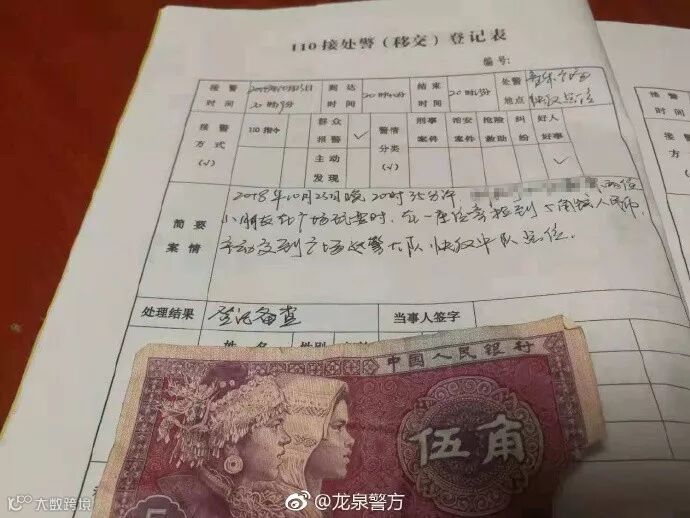 110接处警（移交）登记表
编号：
接警时间 2018年10月23日 到达时间 结束时间 处警地点
接警方式（√） 110指令 群众报警 √ 警情分类（√） 刑事案件 治安案件 抢险救助 纠纷 好人好事 √
主动发现
简要案情 2018年10月23日晚20时35分许， 两位
小朋友在广场玩耍时，在一座位旁捡到5角钱人民币，
主动交到广场处警大队快反中队岗位。
处理结果 登记备查 当事人签字
姓名 性别
中国人民银行
伍角
5
大数跨境
@龙泉警方
接警时间
接警方式（√）